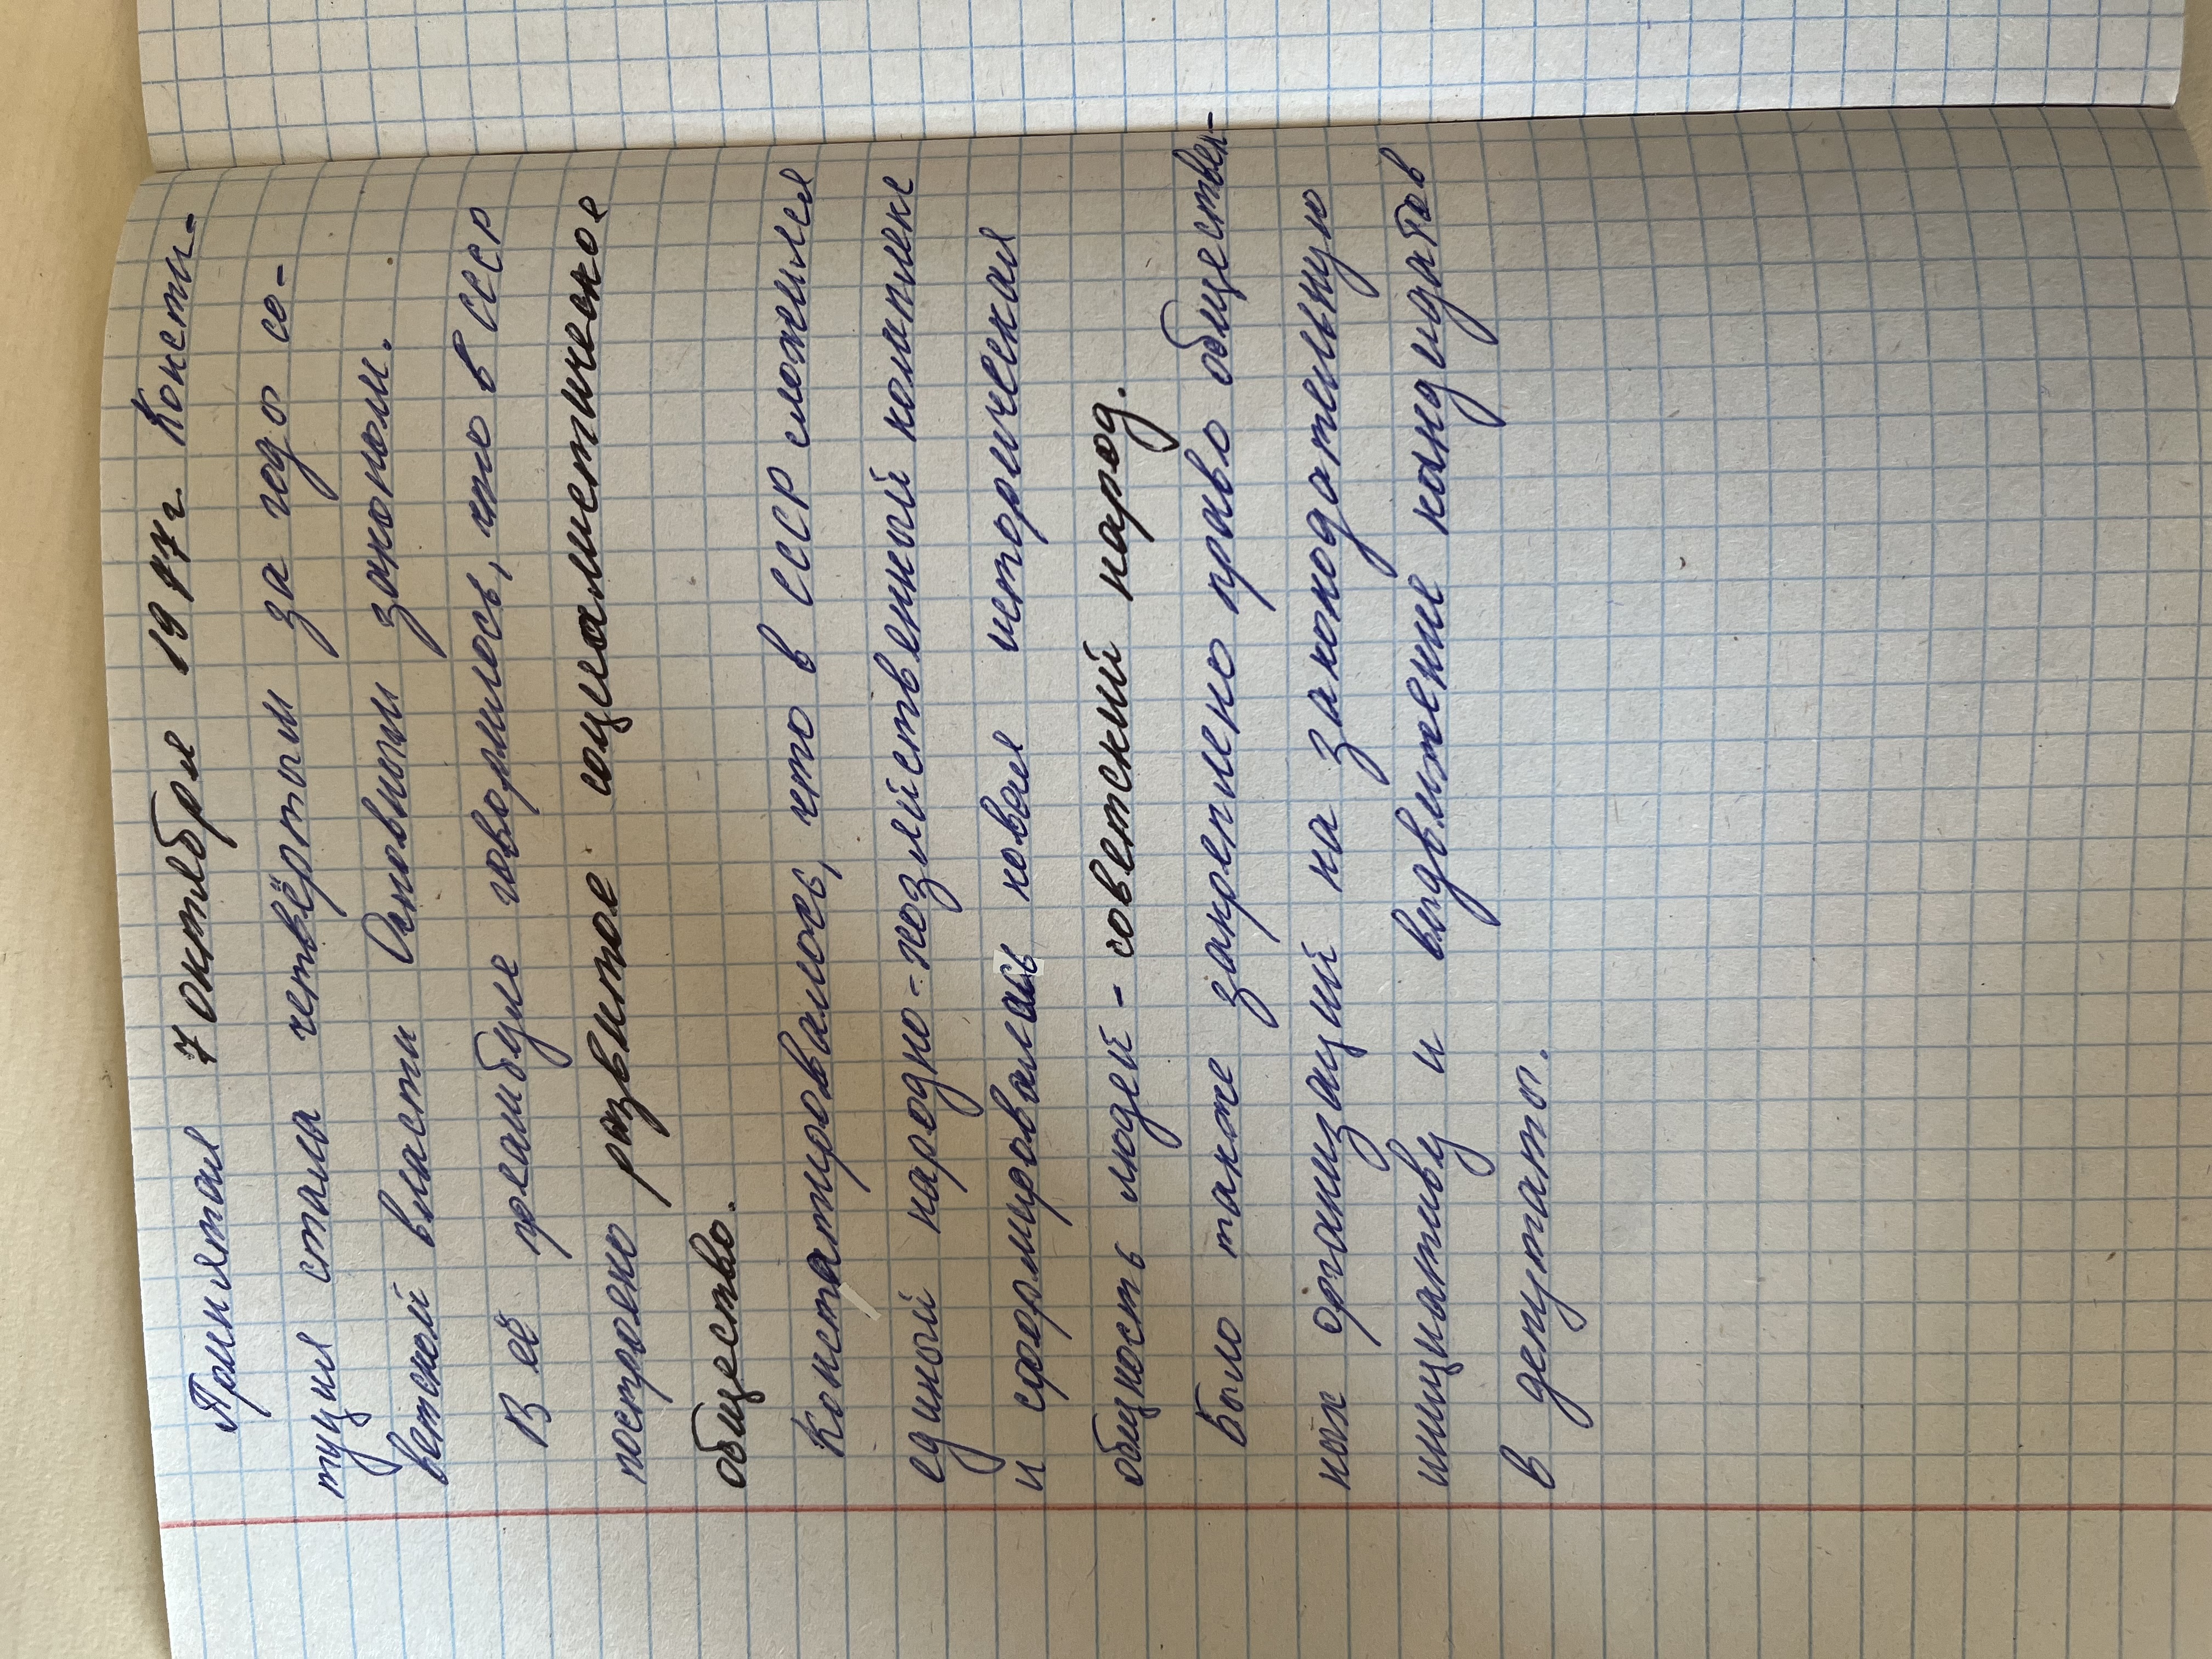 Принятая 7 октября 1977г. Консти-
туция стала четвёртым за годы со-
ветской власти Основным законом.
В её преамбуле говорилось, что в СССР
построено развитое социалистическое
общество.
Констатировалось, что в СССР сложился
единый народно-хозяйственный комплекс
и сформировалась новая историческая
общность людей - советский народ.
Было также закреплено право обществен-
ных организаций на законодательную
инициативу и выдвижение кандидатов
в депутаты.